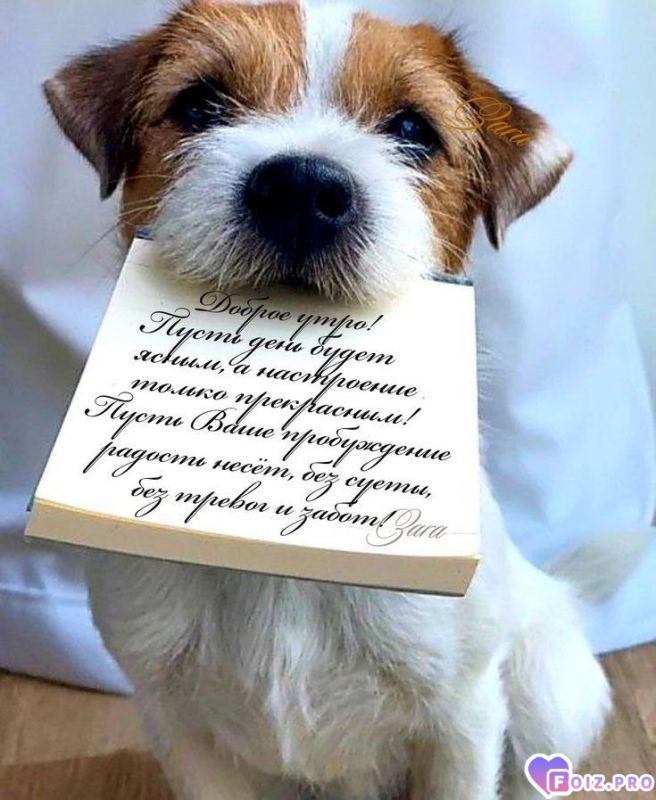 Zara
Доброе утро!
Пусть день будет
ясным, а настроение
только прекрасным!
Пусть Ваше пробуждение
радость несёт, без суеты,
без тревог и забот!
Zara
FOIZ.PRO